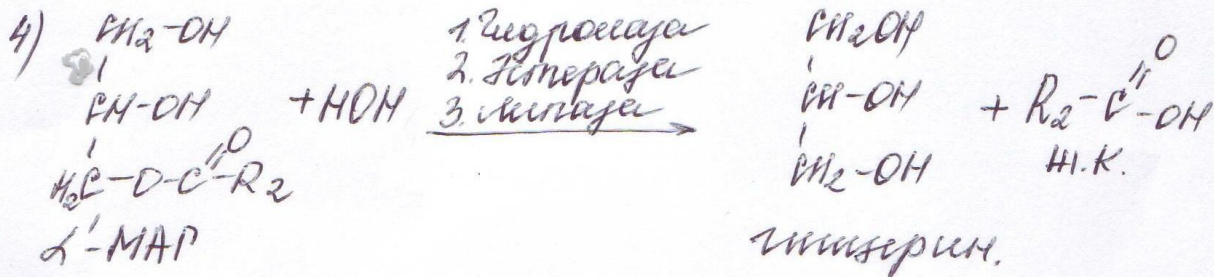 4) CH2-OH
CH-OH + HOH
H2C-O-C=O-R2
α'-МАГ
1. Гидролаза
2. Эстераза
3. Липаза
CH2OH
CH-OH
CH2-OH
глицерин.
+ R2-C=O-OH
Ж.К.